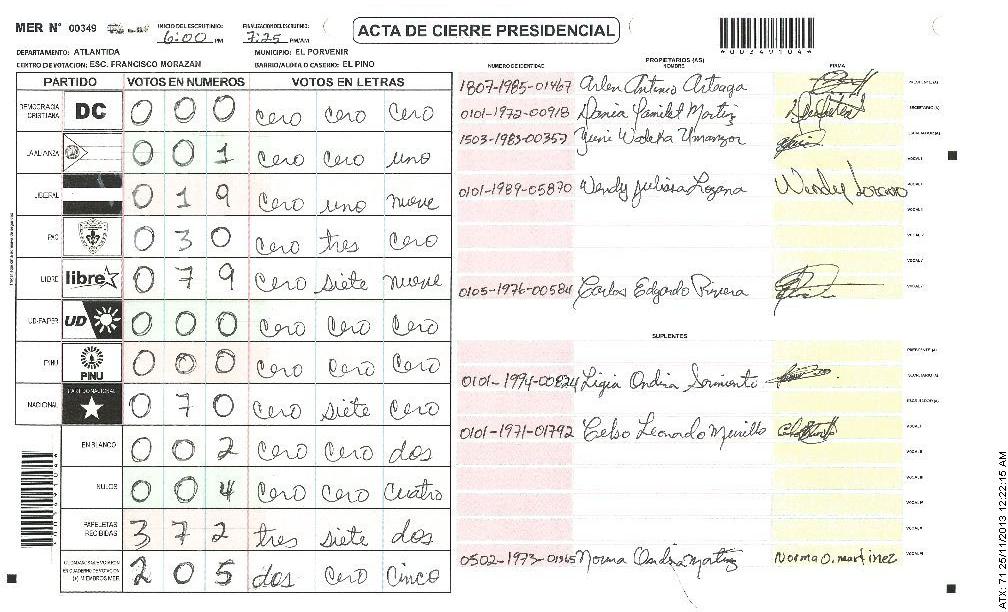 MER N° 00349 INICIO DEL ESCRUTINIO: 6:00 PM FINALIZACION DEL ESCRUTINIO: 7:25 PM/AM
ACTA DE CIERRE PRESIDENCIAL
DEPARTAMENTO: ATLANTIDA MUNICIPIO: EL PORVENIR
CENTRO DE VOTACION: ESC. FRANCISCO MORAZAN BARRIO/ALDEA O CASERIO: EL PINO
PARTIDO VOTOS EN NUMEROS VOTOS EN LETRAS
DEMOCRACIA CRISTIANA DC 0 0 0 cero cero cero
LA ALIANZA 0 0 1 cero cero uno
LIBERAL 0 1 9 cero uno nueve
PAC 0 3 0 cero tres cero
LIBRE libre 0 7 9 cero siete nueve
UD-FAPER UD 0 0 0 cero cero cero
PINU PINU 0 0 0 cero cero cero
NACIONAL PARTIDO NACIONAL 0 7 0 cero siete cero
EN BLANCO 0 0 2 cero cero dos
NULOS 0 0 4 cero cero cuatro
PAPELETAS RECIBIDAS 3 7 2 tres siete dos
CIUDADANOS QUE VOTARON
EN CUADERNO DE VOTACION
(+) MIEMBROS MER 2 0 5 dos cero cinco
PROPIETARIOS (AS)
NUMERO DE IDENTIDAD NOMBRE FIRMA
1807-1985-01467 Arlen Antinco Arteaga
0101-1972-00918 Dania Yamilet Martinez SECRETARIO (A)
1503-1983-00357 Yeni Wadeka Umanzor
VOCAL I
0101-1989-05870 Wendy Julissa Lozano Wendy Lozano
0105-1976-00584 Carlos Edgardo Rivera
SUPLENTES
PRESIDENTE (A)
0101-1994-00824 Ligia Ondina Sarmiento SECRETARIO (A)
ESCRUTADOR (A)
0101-1971-01792 Celso Leonardo Murillo VOCAL I
0502-1973-01365 Norma Ondina Martinez Norma O. martinez
ATX: 71 25/11/2013 12:22:15 AM